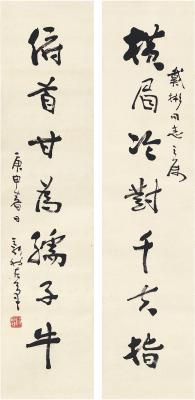 戴彬同志之属
橫眉冷對千夫指
俯首甘為孺子牛
庚申春日